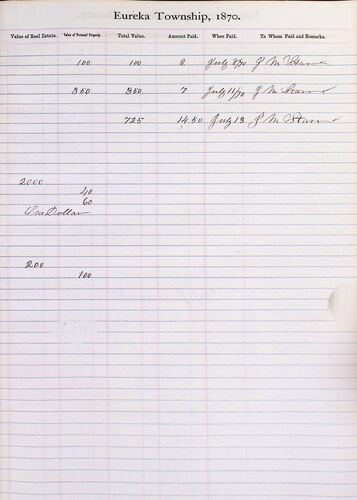 Eureka Township, 1870.
Value of Real Estate. Value of Personal Property. Total Value. Amount Paid. When Paid. To Whom Paid and Remarks.
100 100 2 July 8/70 J M Starr
350 350 7 July 11/70 J M Starr
725 14.50 July 13 J M Starr
2000
40
60
One Dollar
200
100